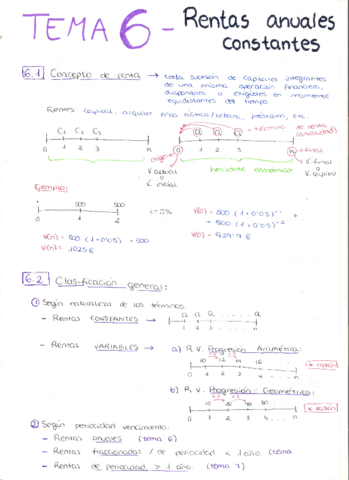 TEMA 6 - Rentas anuales
constantes
6.1 Concepto de renta → toda sucesión de capitales integrantes
de una misma operación financiera,
disponibles o exigibles en momentos
equidistantes del tiempo.
Fuentes: capital, alquiler finca rústica/urbana, préstamo, etc
C1 C2 C3
0 1 2 3 n
a a a → término de renta
(anualidad)
0 1 2 3 n → final
origen
V. actual
o
V. inicial
horizonte económico
V. final
o
Ejemplo:
500 500
0 1 2
i=5%
V(0) = 500 (1+0'05)⁻¹ +
+ 500 (1+0'05)⁻²
V(n) = 500 (1+0'05) + 500
V(n) = 1025 €
V(0) = 929'7 €
6.2 Clasificación general:
① Según naturaleza de los términos.
- Rentas CONSTANTES →
a a a ... a
0 1 2 3 ... n
- Rentas VARIABLES →
a) R.V. Progresión Aritmética:
10 12 14 16
0 1 2 3 4 ... n
b) R.V. Progresión Geométrica:
10 20 40 80
0 1 2 3 4 n
② Según periodicidad vencimiento:
- Rentas anuales (tema 6)
- Rentas fraccionadas / de periodicidad < 1 año. (tema
- Rentas de periodicidad > 1 año. (tema 7)